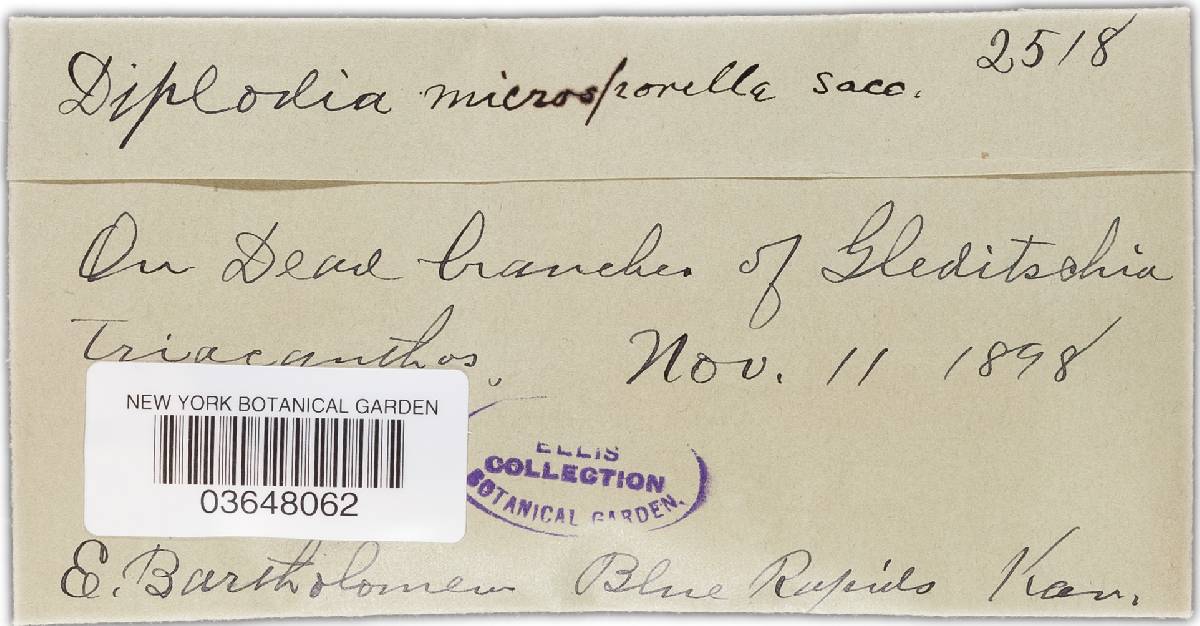 2518
Diplodia microsporella sacc.
On Dead branches of Gleditschia
Triacanthos, Nov. 11 1898
NEW YORK BOTANICAL GARDEN
03648062
ELLIS
COLLECTION
BOTANICAL GARDEN.
E. Bartholomew Blue Rapids Kan.